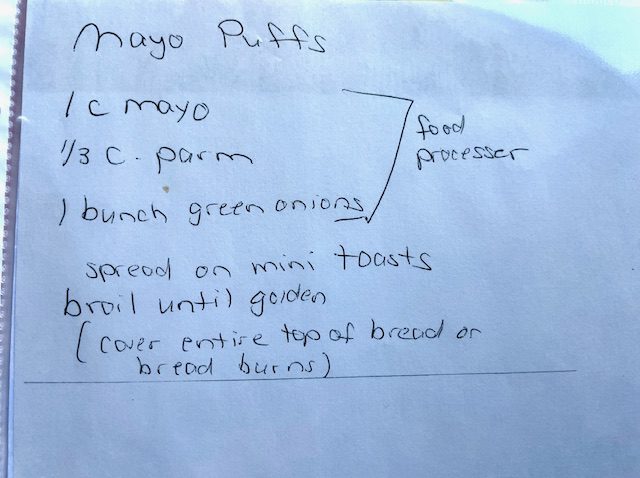 Mayo Puffs
1 c mayo
1/3 c. parm
1 bunch green onions
food
processer
spread on mini toasts
broil until golden
(cover entire top of bread or
bread burns)